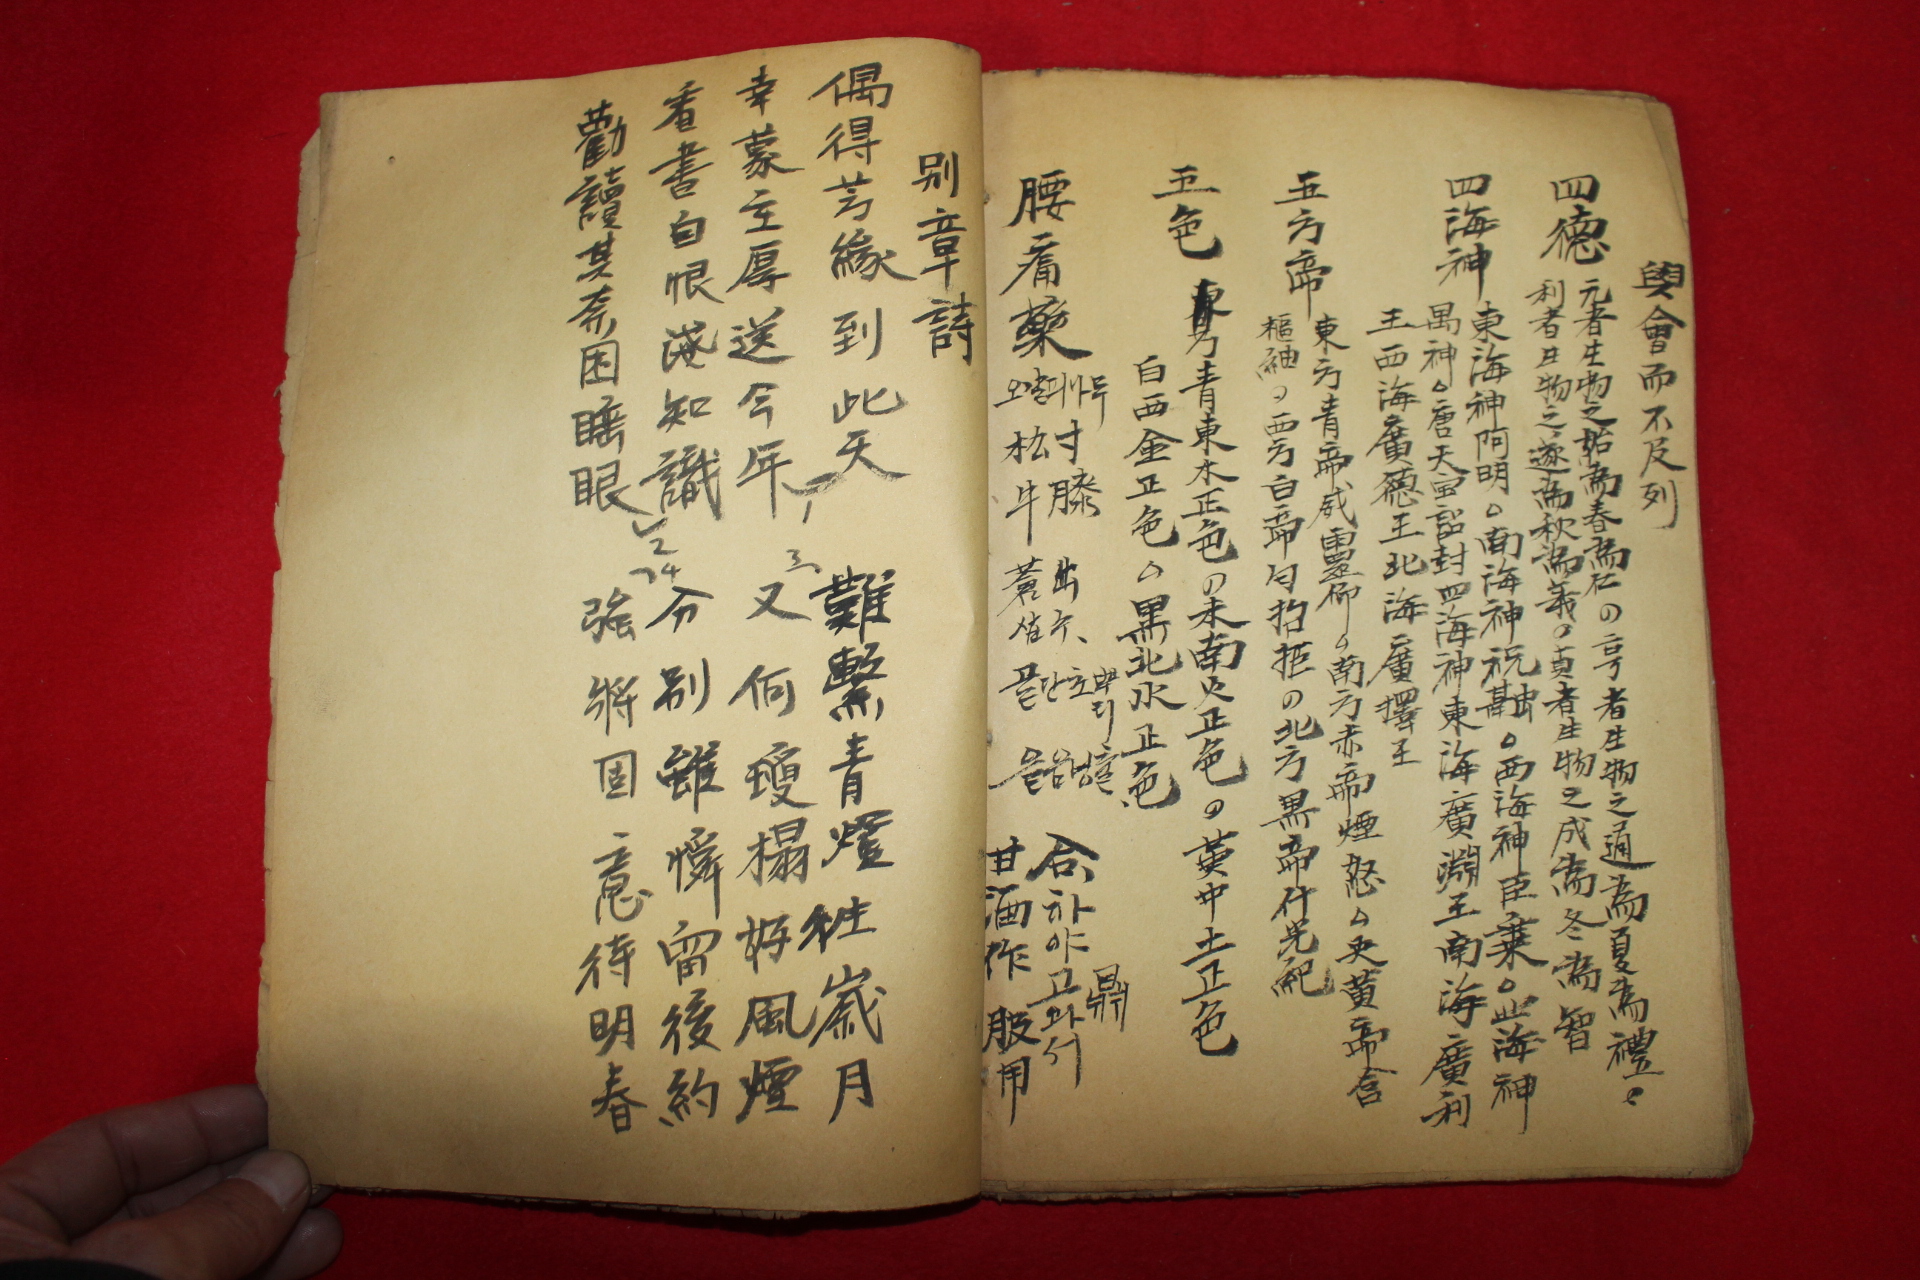 與會而不及列
四德 元者生物之始爲春爲仁の亨者生物之通爲夏爲禮。
利者生物之遂爲秋爲義の貞者生物之成爲冬爲智
四海神 東海神阿明。南海神祝融。西海神臣乘。此海神
禺神。唐天宝詔封四海神東海廣淵王南海廣利
王西海廣德王北海廣擇王
五方帝 東方青帝威靈仰。南方赤帝煙怒。央黃帝含
樞紐の西方白帝白招拒の北方黑帝什光紀
五色 東方青東木正色の末南火正色の黃中土正色
白西金正色。黑北水正色
腰痛藥 寸 膝 出 合 하야 고와서 鼎
松 牛 蒼 甘酒作服用
別章詩
偶得芳緣到此天 難繫青燈往歲月
幸蒙主厚送今年 又何瓊榻好風煙
看書自恨淺知識 分別雖憐留後約
勸讀其奈困睡眼 強將固意待明春